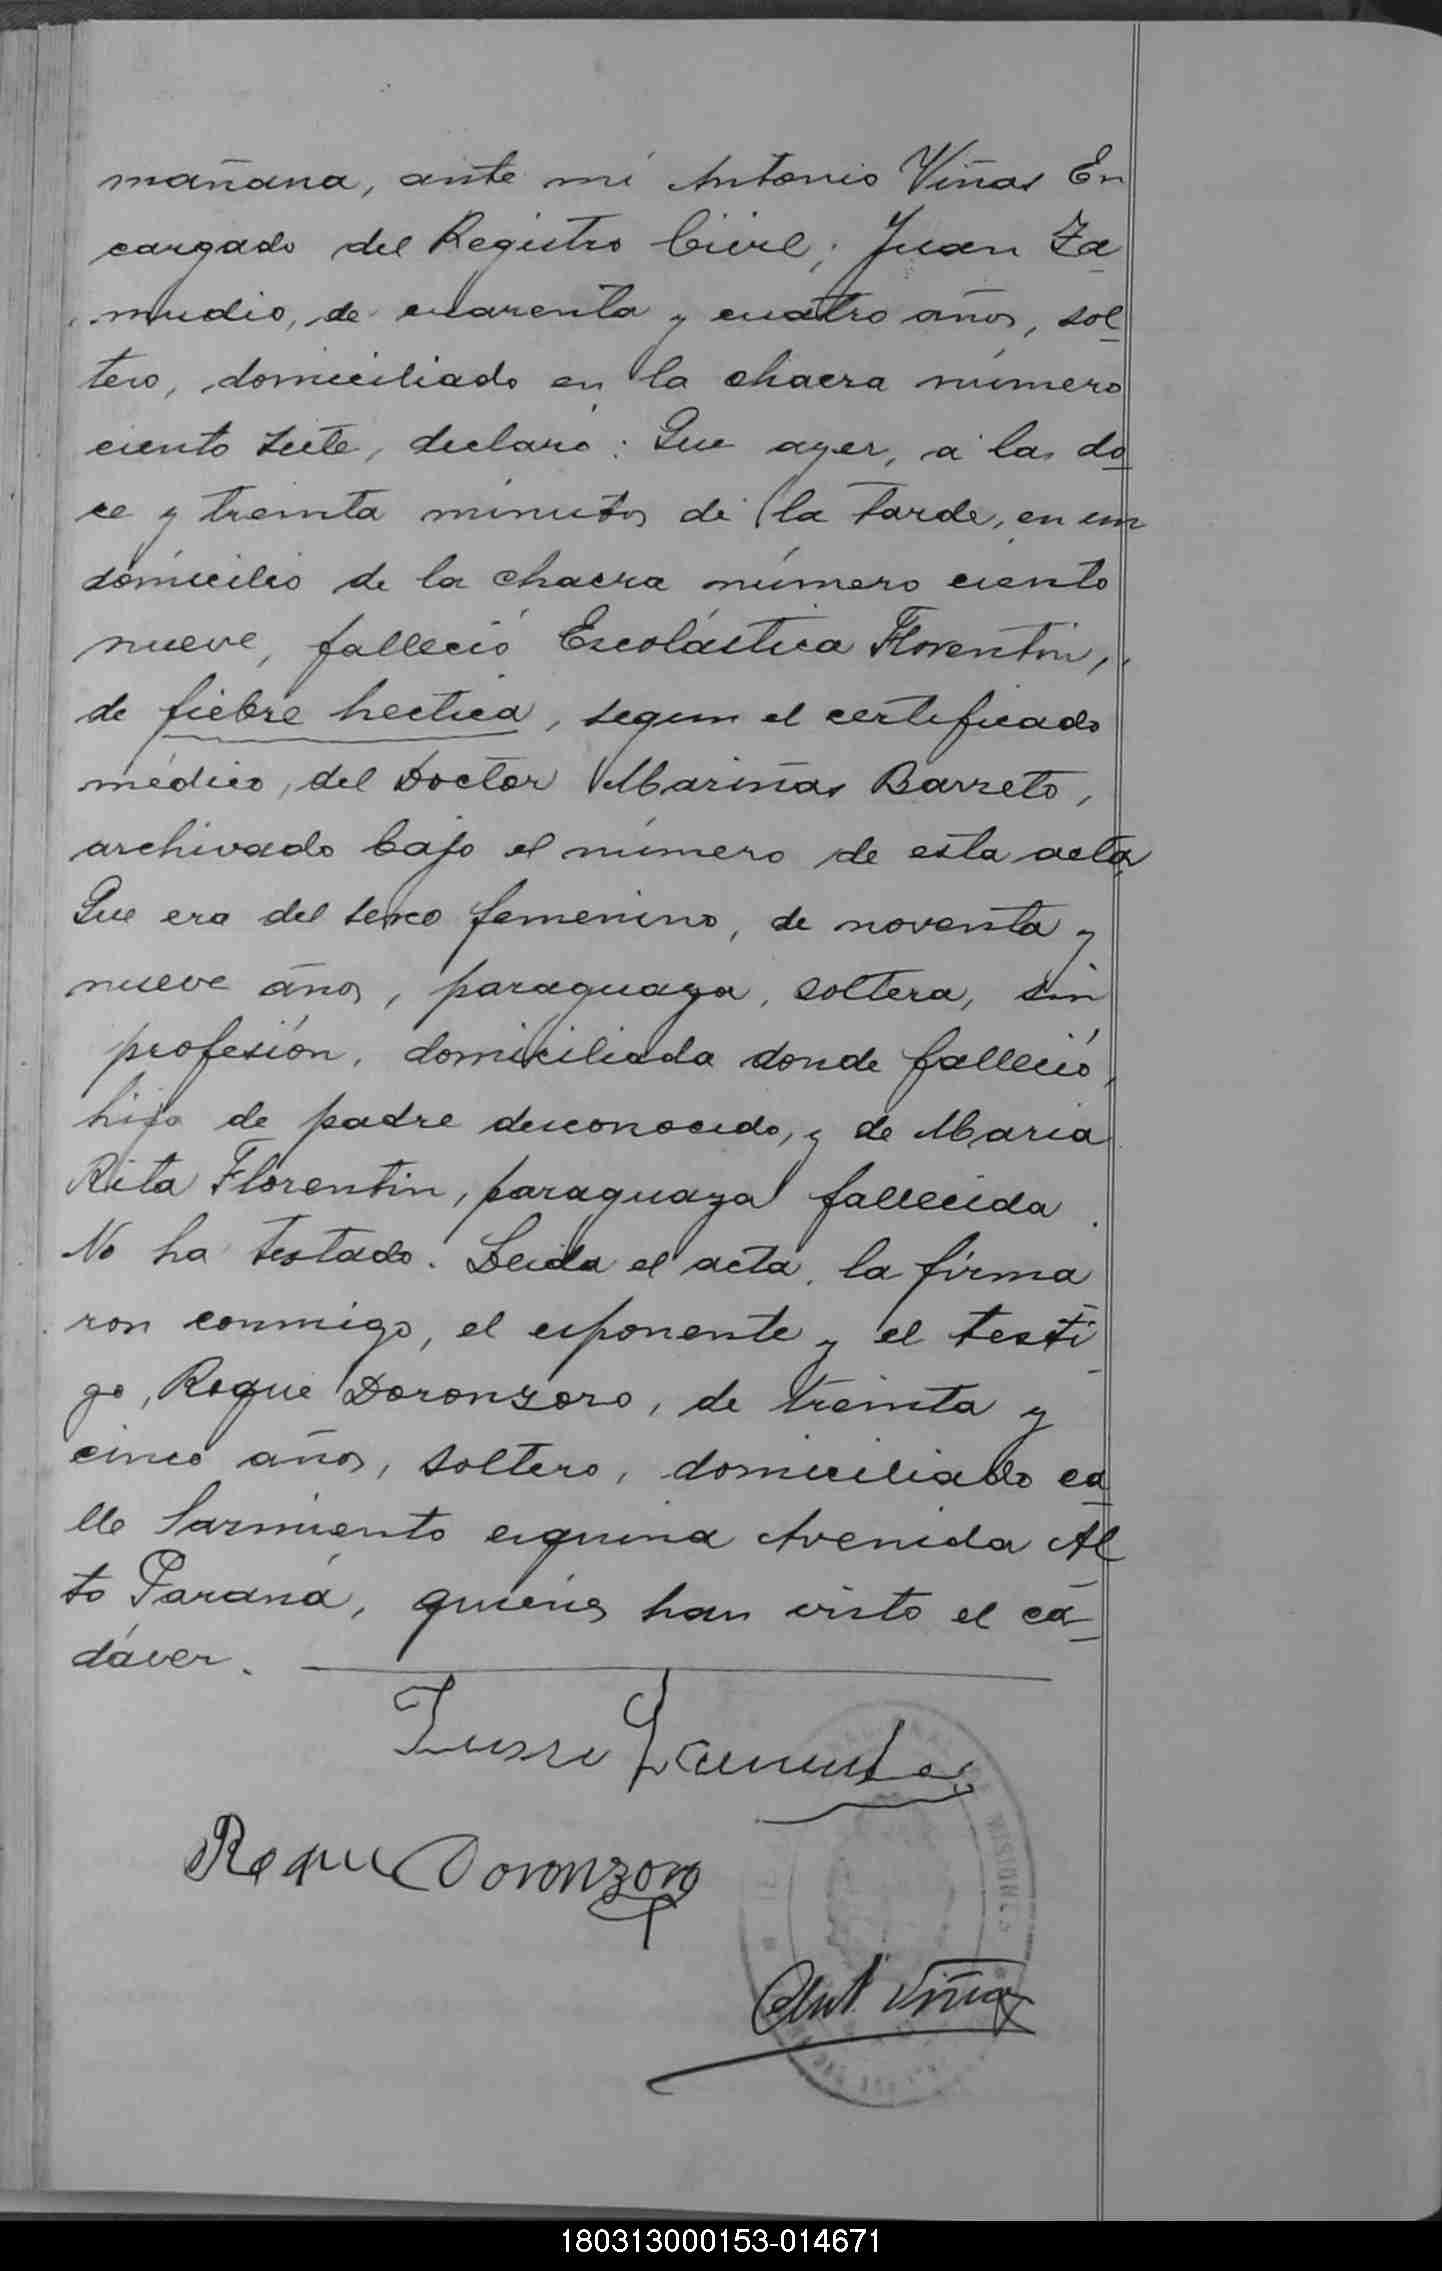 mañana, ante mí Antonio Viñas En
cargado del Registro Civil; Juan Za
mudio, de cuarenta y cuatro años, sol
tero, domiciliado en la chacra número
ciento siete, declaró: Que ayer, á las do
ce y treinta minutos de la tarde, en un
domicilio de la chacra número ciento
nueve, falleció Escolástica Florentin,
de fiebre hectica, segun el certificado
médico, del Doctor Mariñas Barreto,
archivado bajo el número de esta acta
Que era del sexo femenino, de noventa y
nueve años, paraguaya, soltera, sin
profesión, domiciliada donde falleció,
hija de padre desconocido, y de Maria
Rita Florentin, paraguaya fallecida.
No ha testado. Leida el acta, la firma
ron conmigo, el exponente y el testi
go, Roque Doronzoro, de treinta y
cinco años, soltero, domiciliado ca
lle Sarmiento esquina Avenida Al
to Paraná, quiénes han visto el ca
dáver.
Juan Zamudio
Roque Doronzoro
MISIONES
Ant. Viñas
180313000153-014671